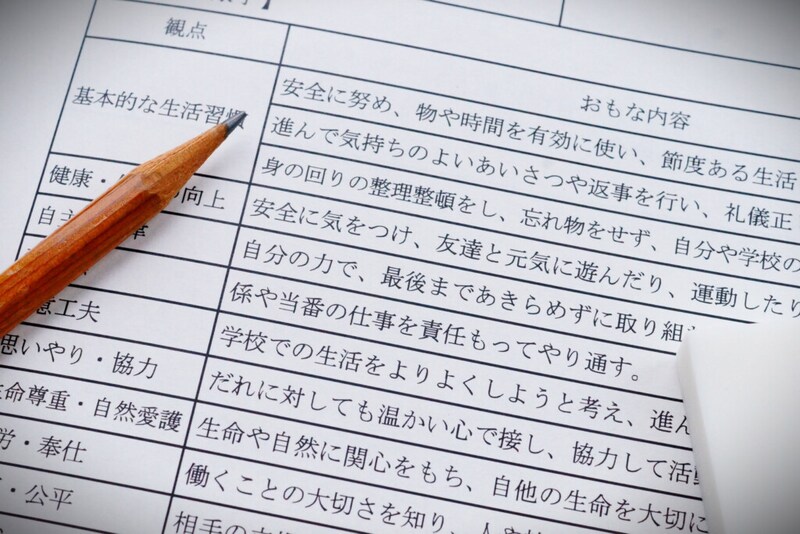 観点
おもな内容
基本的な生活習慣
安全に努め、物や時間を有効に使い、節度ある生活
進んで気持ちのよいあいさつや返事を行い、礼儀正
身の回りの整理整頓をし、忘れ物をせず、自分や学校の
健康・ の向上
安全に気をつけ、友達と元気に遊んだり、運動したり
自主
自分の力で、最後まであきらめずに取り組
係や当番の仕事を責任もってやり通す。
意工夫
学校での生活をよりよくしようと考え、進ん
思いやり・協力
だれに対しても温かい心で接し、協力して活動
生命尊重・自然愛護
生命や自然に関心をもち、自他の生命を大切に
労・奉仕
働くことの大切さを知り、人や
・公平
相手の